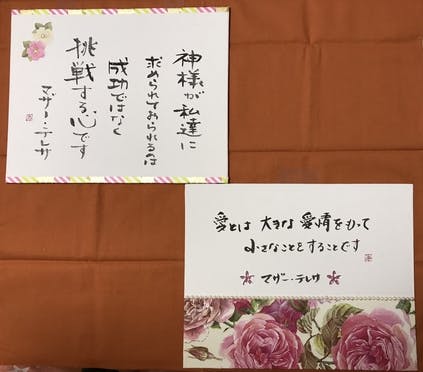 神様が私達に
求められておられるのは
成功ではなく
挑戦する心です
マザー・テレサ
愛とは 大きな愛情をもって
小さなことをすることです
マザー・テレサ